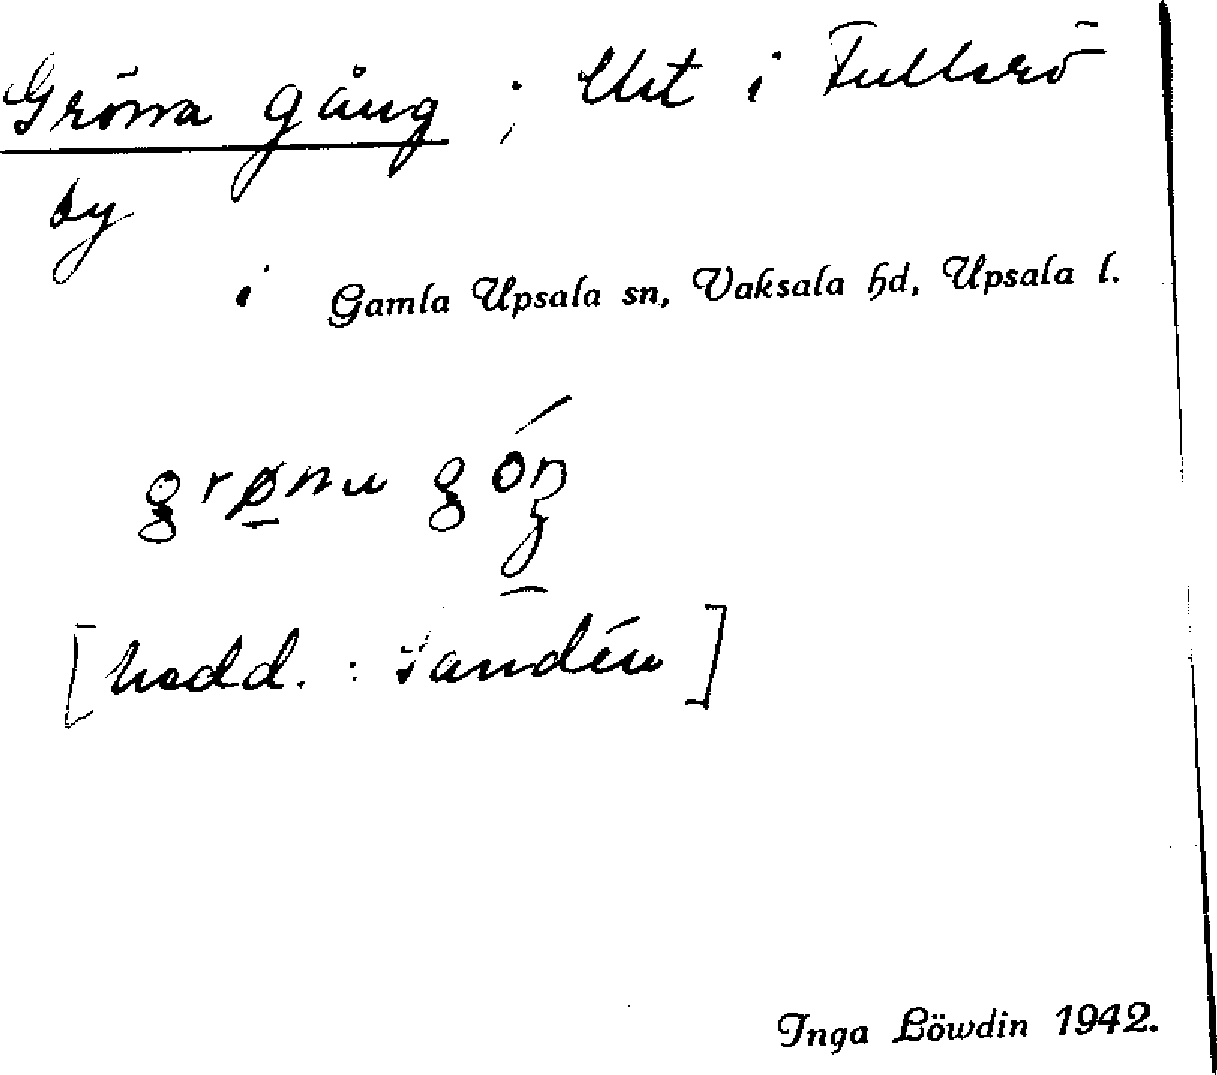 Gröna gång ; Urt i Fullerö
by
i Gamla Upsala sn, Vaksala hd, Upsala l.
grønu góŋ
[medd. : Sandén]
Inga Löwdin 1942.